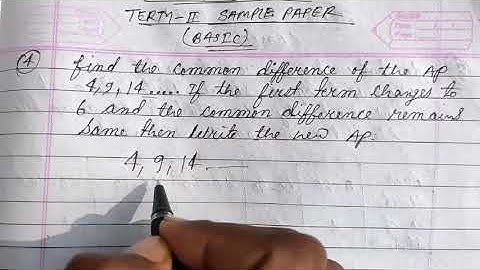 TERM-II SAMPLE PAPER
(BASIC)
1 find the common difference of the AP
4,9,14..... If the first term changes to
6 and the common difference remains
same then write the new AP.
4, 9, 14 ......